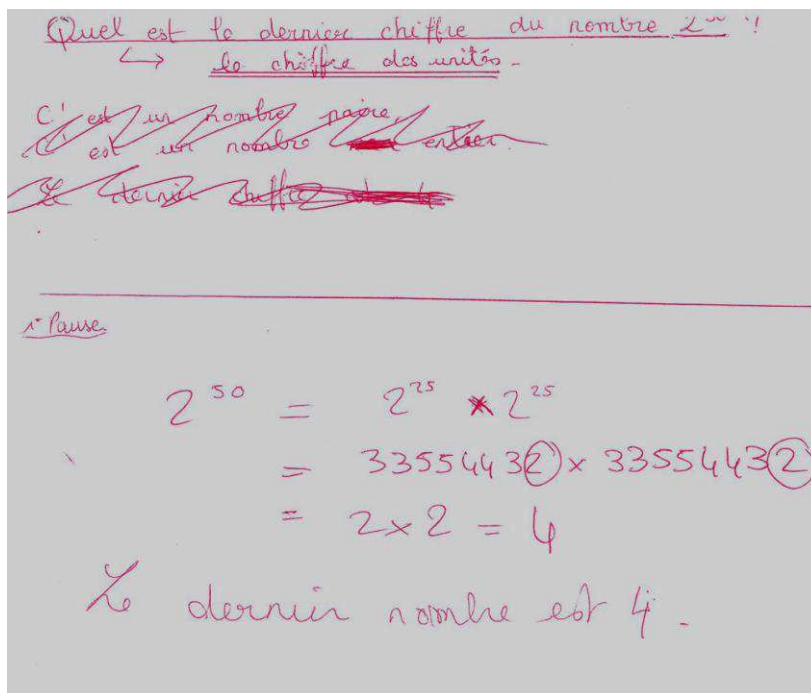 Quel est le dernier chiffre du nombre 2 ?
↳ le chiffre des unités.
C'est un nombre paire.
C'est un nombre entier.
Le dernier chiffre
1° Pause
2⁵⁰ = 2²⁵ * 2²⁵
= 33554432 x 33554432
= 2 x 2 = 4
Le dernier nombre est 4.